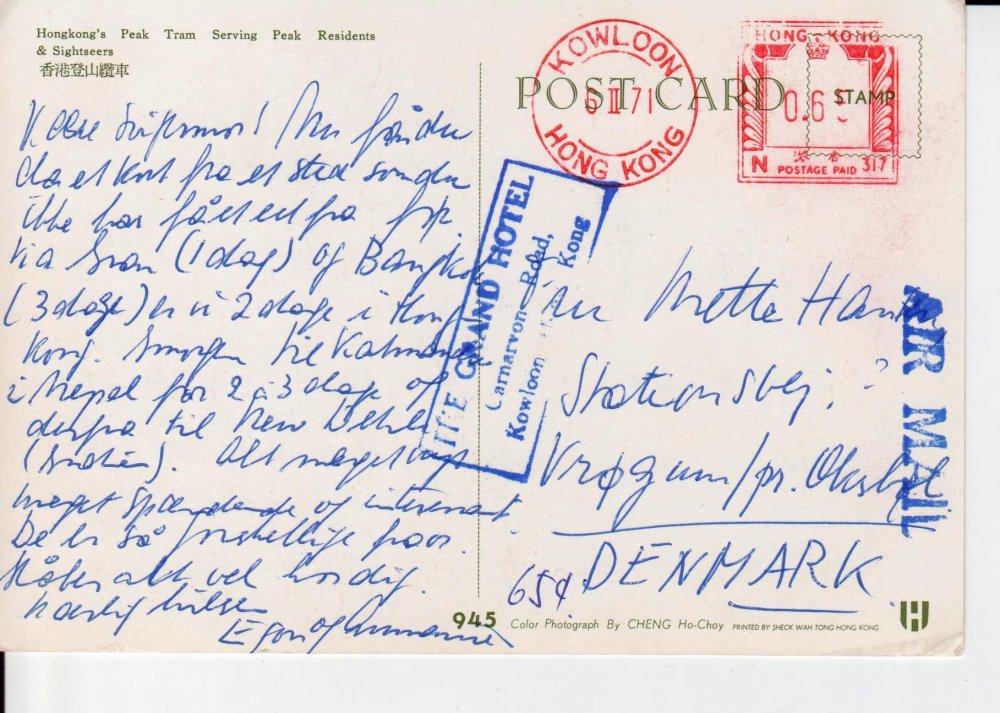 Hongkong's Peak Tram Serving Peak Residents
& Sightseers
香港登山纜車
Kære Svigermor! Nu får du
da et kort fra et sted som du
ikke har fået et fra før.
Via Iran (1 dag) og Bangkok
(3 dage) er vi 2 dage i Hong
Kong. Imorgen til Katmandu
i Nepal for 2 à 3 dage og
derfra til New Dehli
(Indien). Alt meget
meget spændende og interessant
De er så forskellige
Håber alt vel hos dig.
Kærlig hilsen
Egon og
POST CARD
KOWLOON
5 II 71
HONG KONG
HONG KONG
0.65
STAMP
N
香港
POSTAGE PAID
317
THE GRAND HOTEL
Carnarvon Road,
Kowloon Kong
Fru Mette Hansen
Stationsvej
Vrøgum/pr. Oksbøl
DENMARK
AIR MAIL
65¢
945
Color Photograph By CHENG Ho-Choy
PRINTED BY SHECK WAH TONG HONG KONG